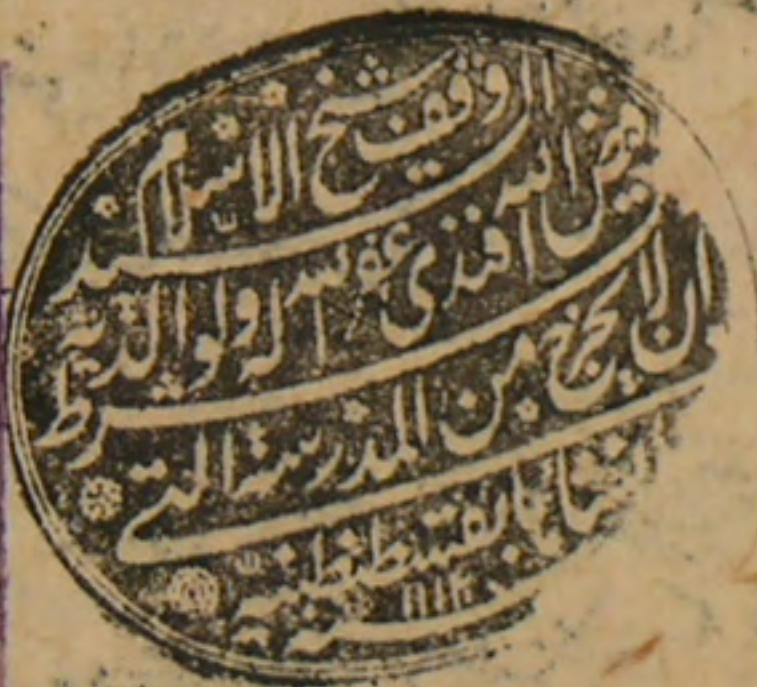 وقف شيخ الاسلام السيد
فيض الله افندى عفى الله له ولوالديه بشرط
ان لا يخرج من المدرسة التى
انشأها بقسطنطينية
سنة ١١١٢